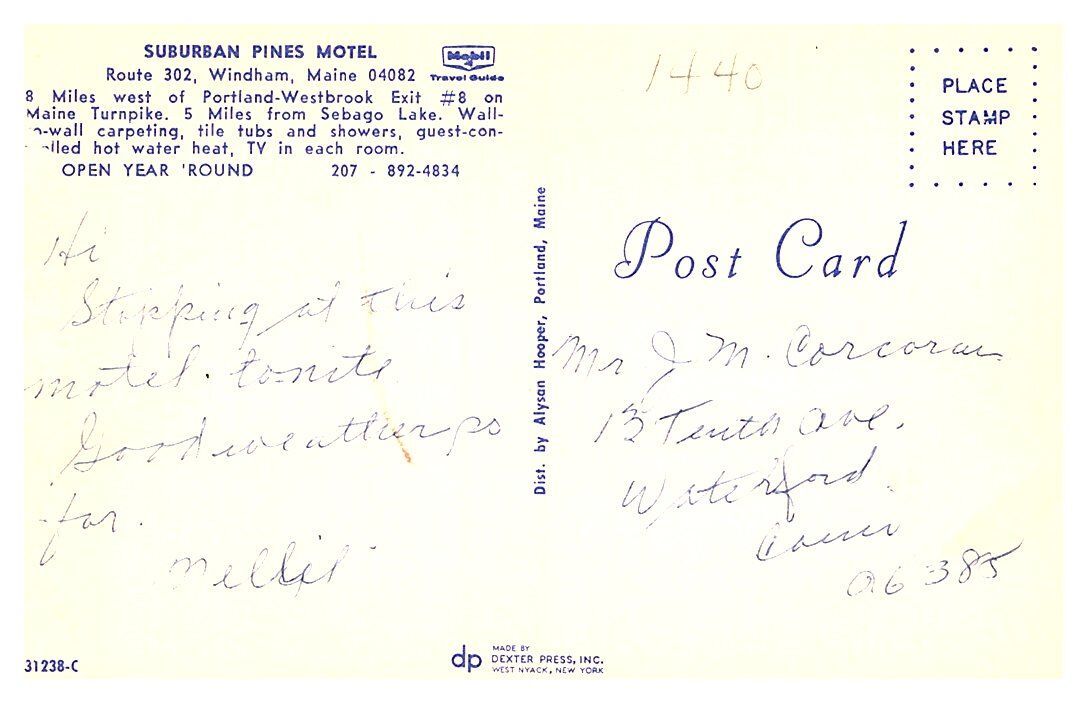 SUBURBAN PINES MOTEL
Route 302, Windham, Maine 04082
Mobil
Travel Guide
8 Miles west of Portland-Westbrook Exit #8 on
Maine Turnpike. 5 Miles from Sebago Lake. Wall-
o-wall carpeting, tile tubs and showers, guest-con-
olled hot water heat, TV in each room.
OPEN YEAR 'ROUND 207 - 892-4834
Hi
Stopping at this
motel. to-nite
Good weather so
far.
Nellie
31238-C
Dist. by Alysan Hooper, Portland, Maine
dp
MADE BY
DEXTER PRESS, INC.
WEST NYACK, NEW YORK
1440
PLACE
STAMP
HERE
Post Card
Mr J M. Corcoran
13 Tenth Ave.
Waterford
Conn
06385